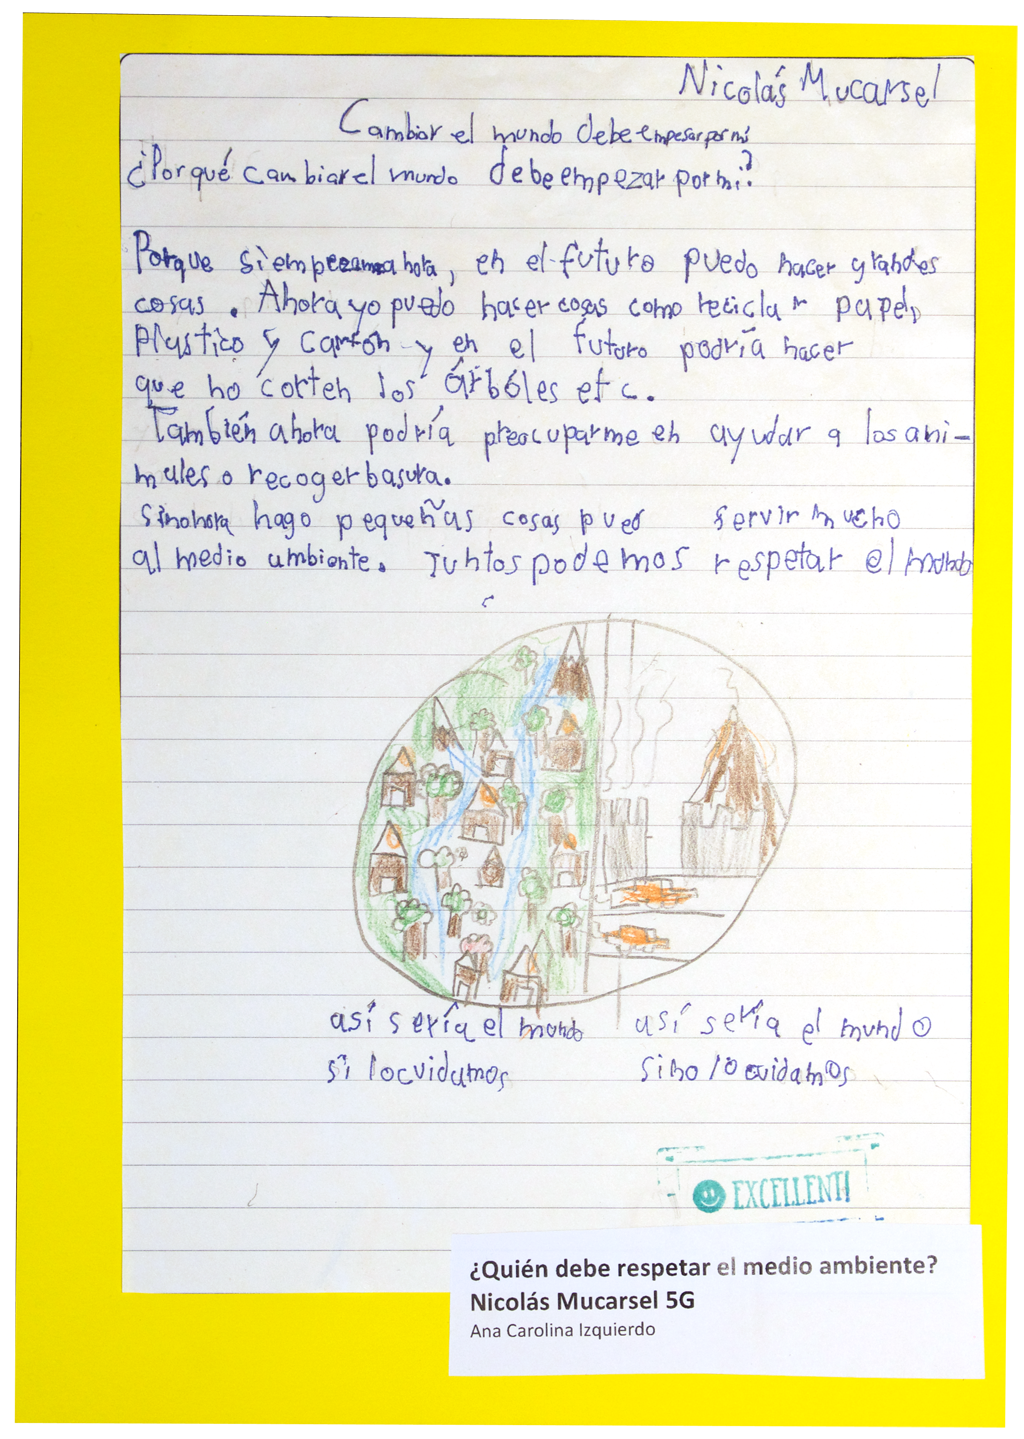 Nicolás Mucarsel
Cambiar el mundo debe empesar por mi
¿Por qué cambiar el mundo debe empezar por mi?
Porque si empezamos ahora, en el futuro puedo hacer grandes
cosas. Ahora yo puedo hacer cosas como reciclar papel,
Plastico y Cartón y en el futuro podría hacer
que no corten los árbóles etc.
También ahora podría preocuparme en ayudar a los ani-
males o recoger basura.
si ahora hago pequeñas cosas pued servir mucho
al medio ambiente. Juntos podemos respetar el mundo
así sería el mundo así sería el mundo
si lo cuidamos si no lo cuidamos
EXCELLENT!
¿Quién debe respetar el medio ambiente?
Nicolás Mucarsel 5G
Ana Carolina Izquierdo